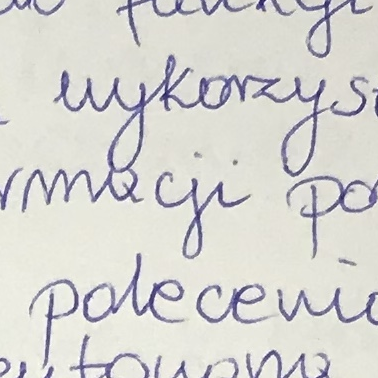 funkcji
wykorzys
rmacji po
poleceni
entowana